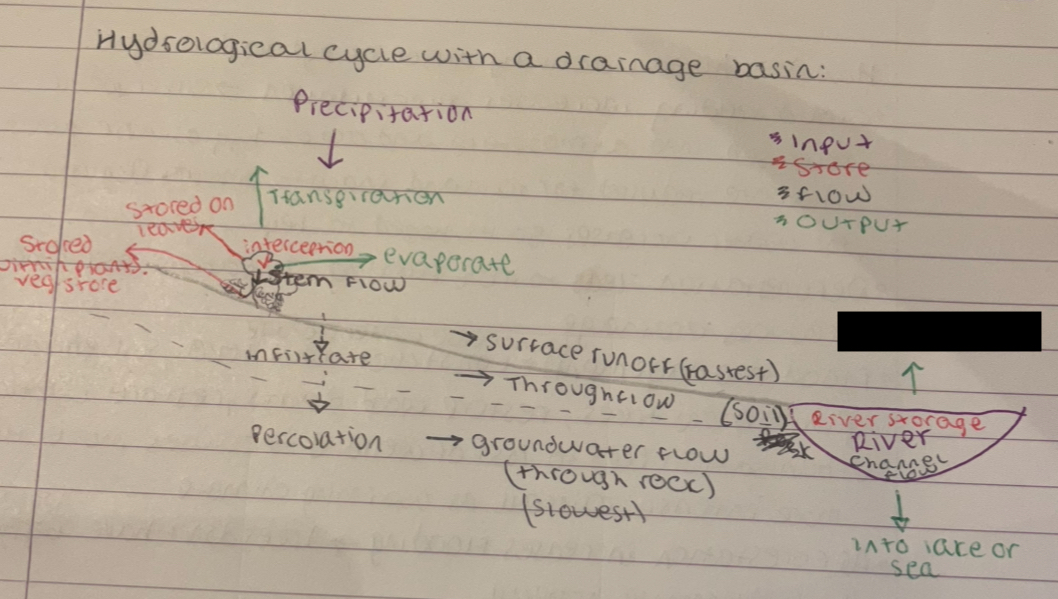 Hydrological cycle with a drainage basin:
Precipitation
* Input
* Store
* Flow
* Output
Transpiration
Stored on
leaves
interception
evaporate
Stored
within plants.
veg store
Stem flow
infiltrate
surface runoff (fastest)
Throughflow
(soil)
River storage
River
channel
flow
Percolation
groundwater flow
(through rock)
(slowest)
into lake or
sea